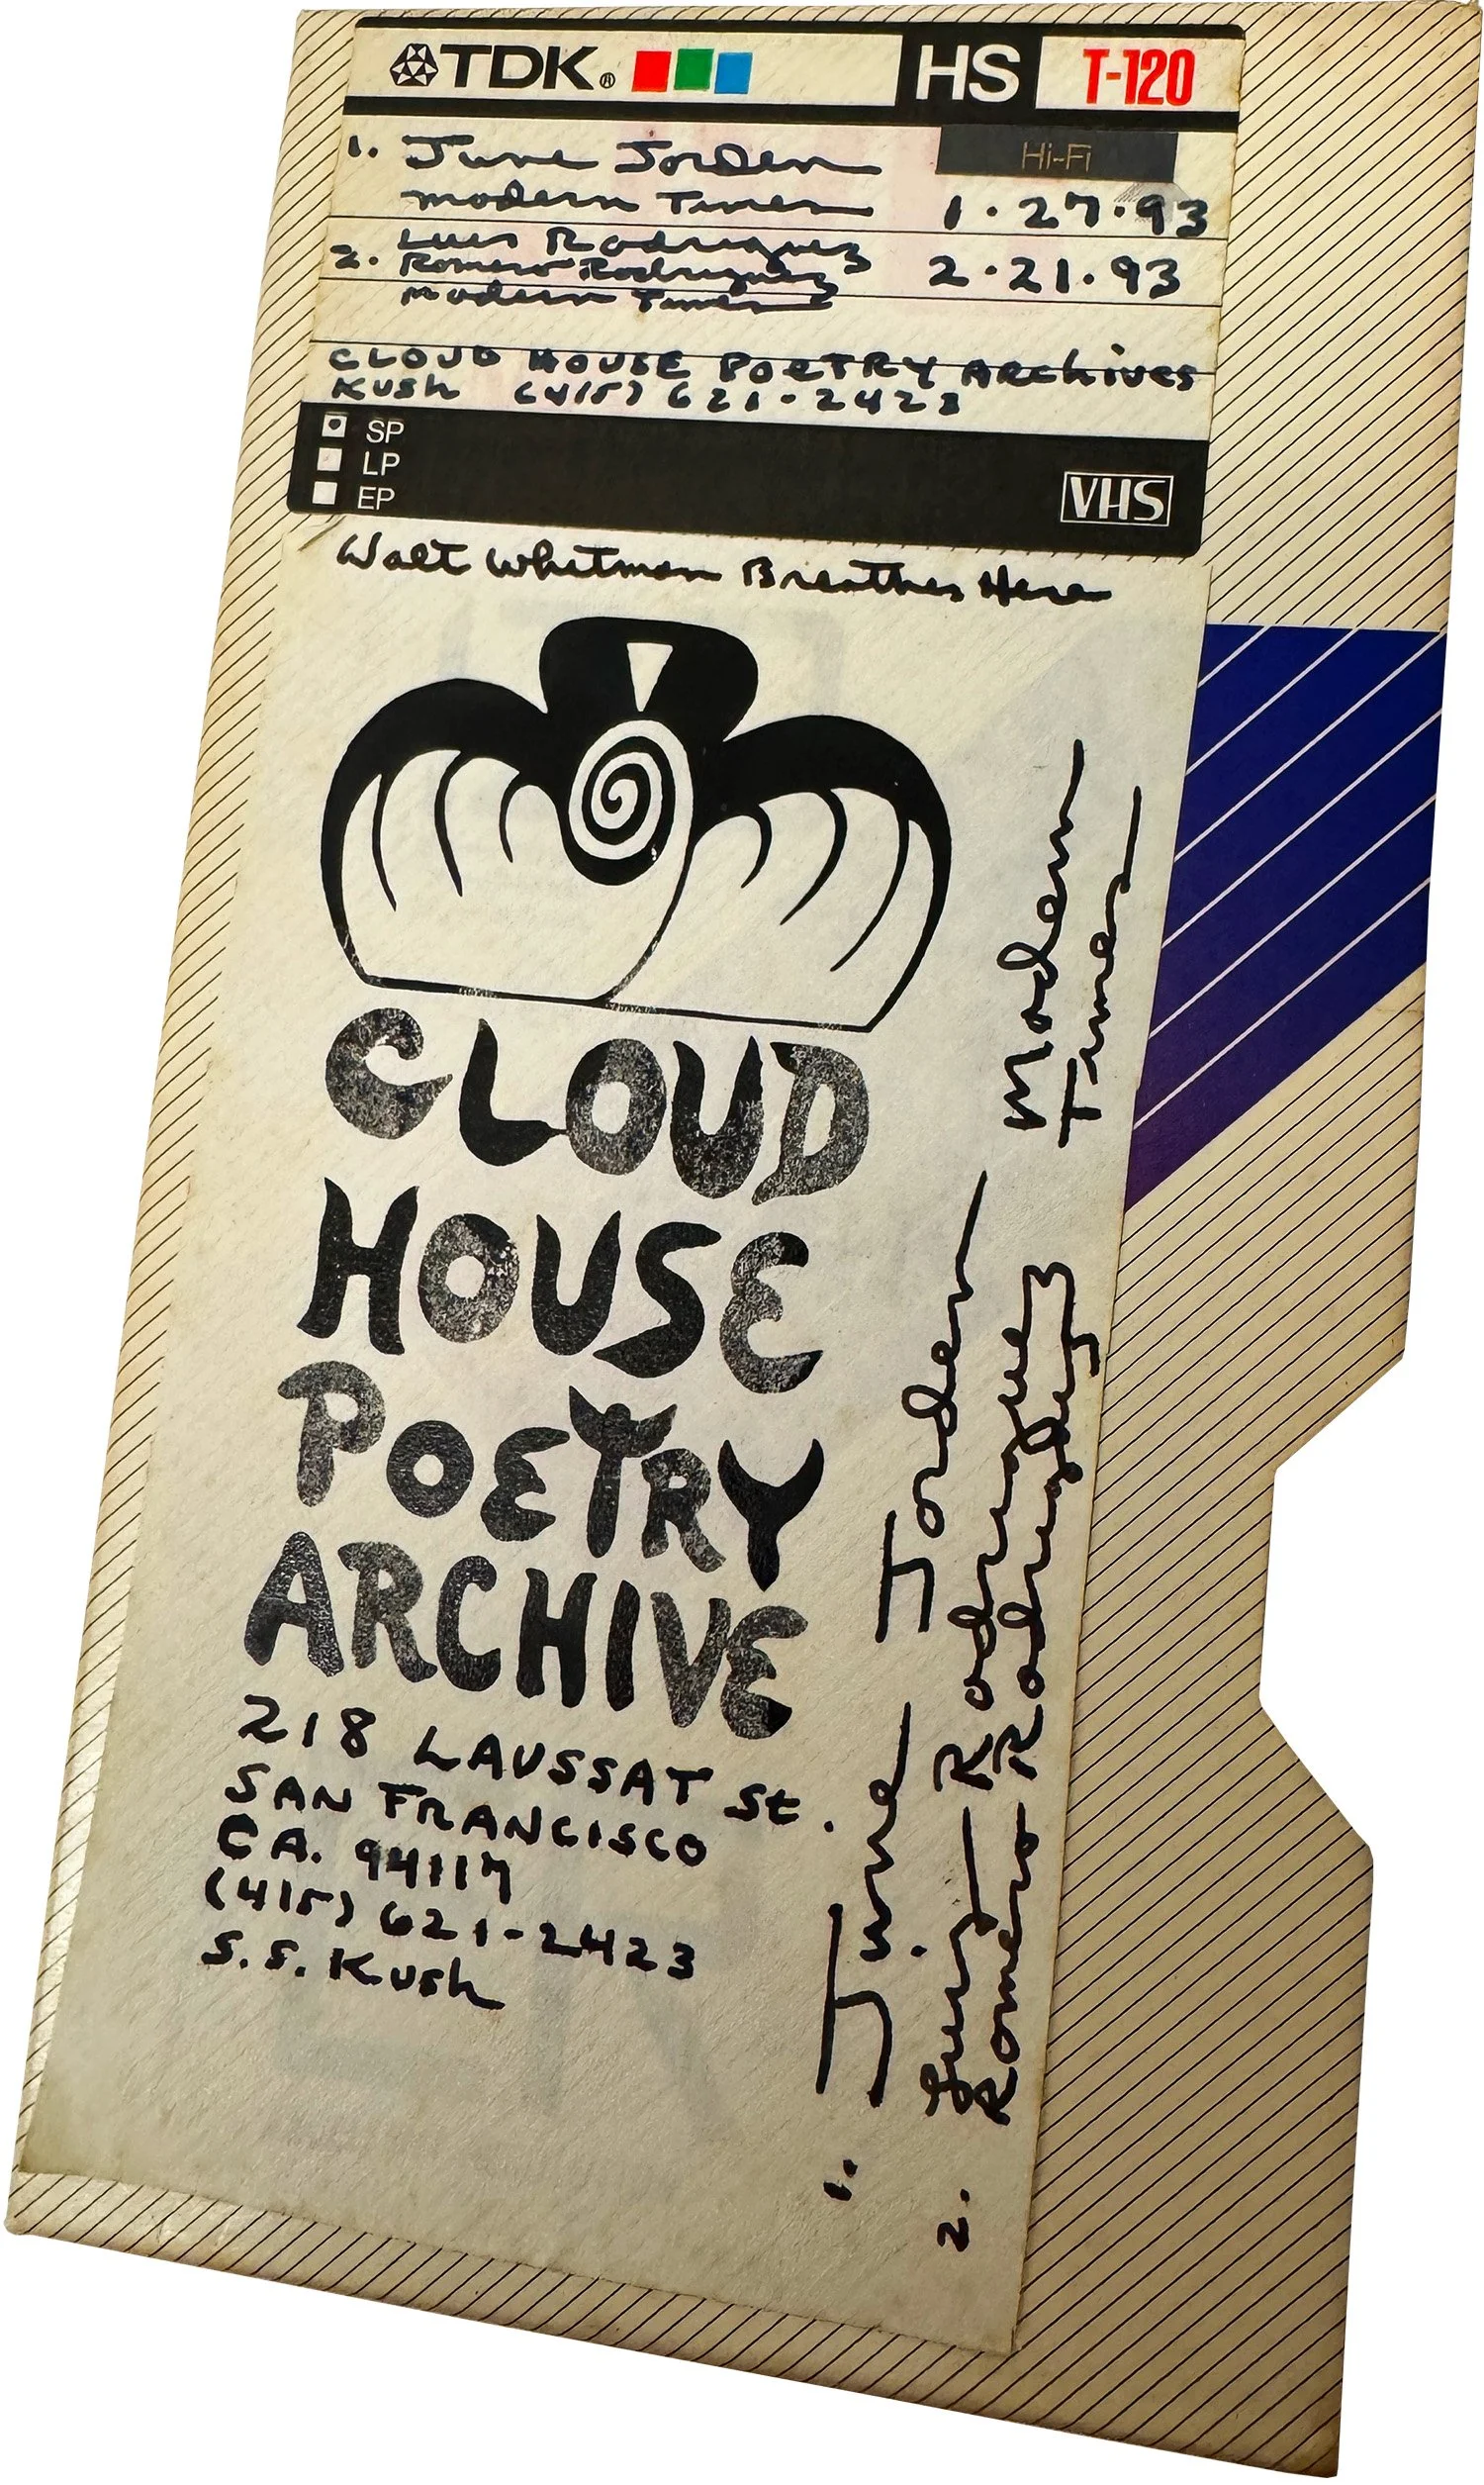 TDK® HS T-120
Hi-Fi
1. June Jorden
Modern Times 1·27·93
Luis Rodriguez
2. Romero Rodriguez 2·21·93
Modern Times
CLOUD HOUSE POETRY ARChives
Kush (415) 621-2423
SP
LP
EP
VHS
Walt Whitman Breathes Here
CLOUD
HOUSE
POETRY
ARCHIVE
218 LAUSSAT St.
SAN FRANCISCO
CA. 94117
(415) 621-2423
S.S. Kush
1. June Jorden Modern
Times
2. Luis Rodriguez
Romero Rodriguez